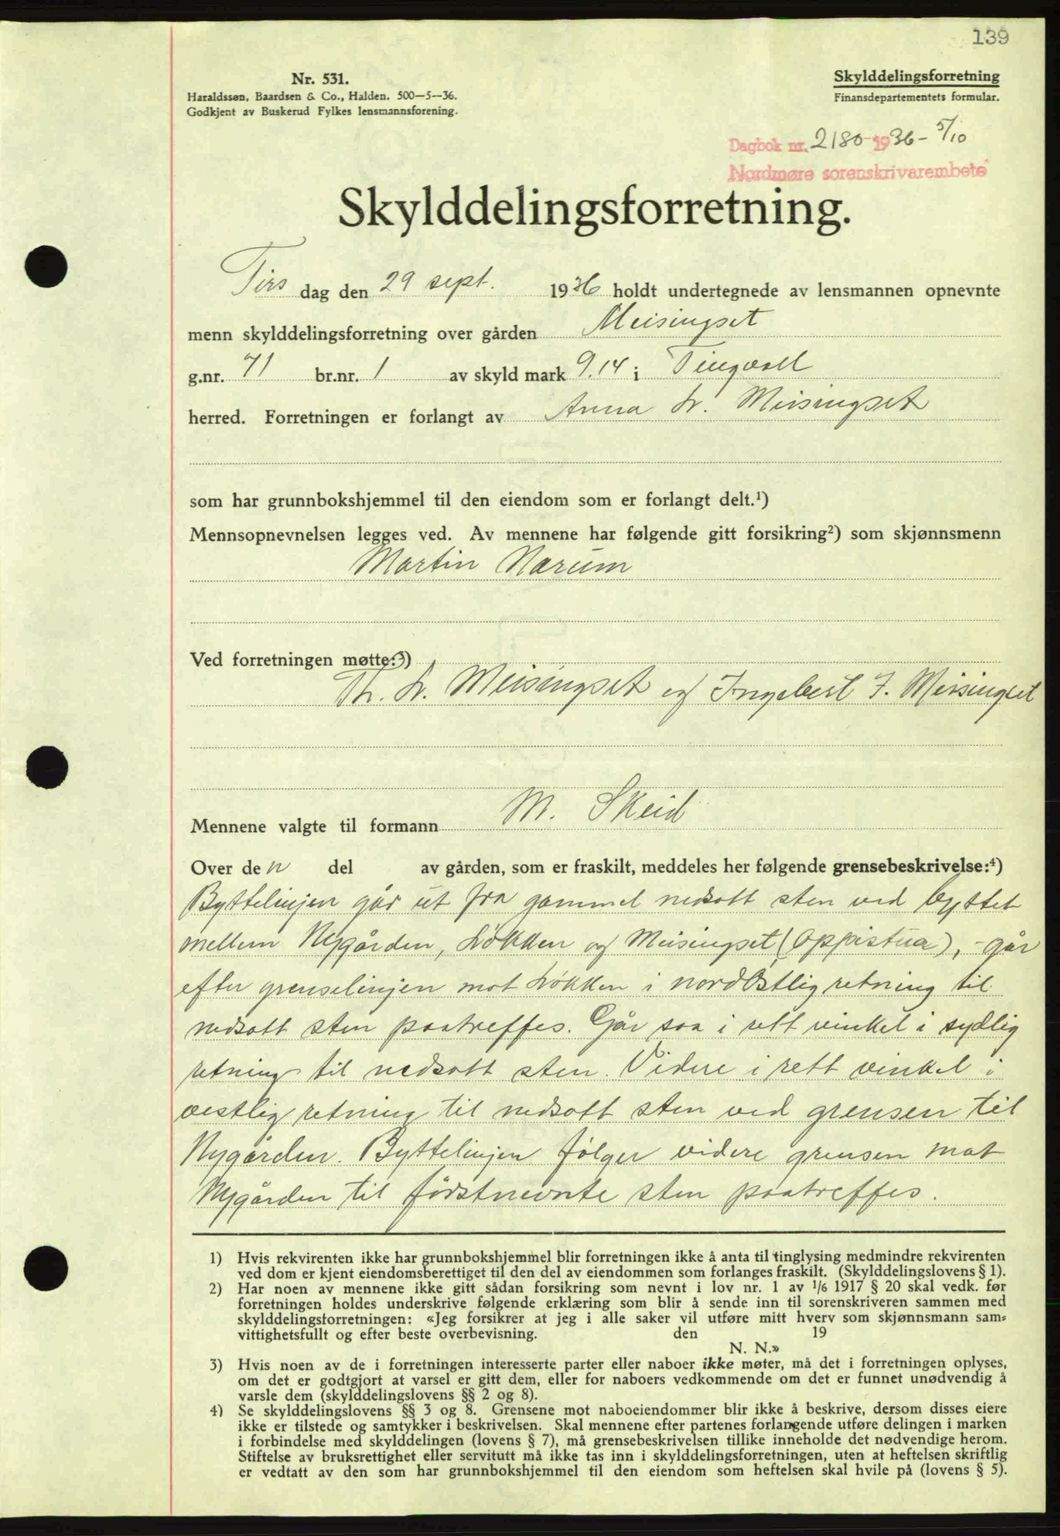 139
Nr. 531.
Haraldssen, Baardsen & Co., Halden. 500—5—36.
Godkjent av Buskerud Fylkes lensmannsforening.
Skylddelingsforretning
Finansdepartementets formular.
Dagbok nr. 2180 1936 - 5/10
Nordmøre sorenskrivarembete
Skylddelingsforretning.
Tirs dag den 29 sept. 1936 holdt undertegnede av lensmannen opnevnte
menn skylddelingsforretning over gården Meisingset
g.nr. 71 br.nr. 1 av skyld mark 9.14 i Tingvoll
herred. Forretningen er forlangt av Anna L. Meisingset
som har grunnbokshjemmel til den eiendom som er forlangt delt.¹)
Mennsopnevnelsen legges ved. Av mennene har følgende gitt forsikring²) som skjønnsmenn
Martin Narum
Ved forretningen møtte:³)
Th. L. Meisingset og Ingebert J. Meisingset
Mennene valgte til formann M. Skeid
Over den del av gården, som er fraskilt, meddeles her følgende grensebeskrivelse:⁴)
Byttelinjen går ut fra gammel nedsatt sten ved byttet
mellem Nygården, Løkken og Meisingset (Oppistua), - går
efter grenselinjen mot Løkken i nordøstlig retning til
nedsatt sten paatreffes. Går saa i rett vinkel i sydlig
retning til nedsatt sten. Videre i rett vinkel i
vestlig retning til nedsatt sten ved grensen til
Nygården. Byttelinjen følger videre grensen mot
Nygården til førstnevnte sten paatreffes.
1) Hvis rekvirenten ikke har grunnbokshjemmel blir forretningen ikke å anta til tinglysing medmindre rekvirenten
ved dom er kjent eiendomsberettiget til den del av eiendommen som forlanges fraskilt. (Skylddelingslovens § 1).
2) Har noen av mennene ikke gitt sådan forsikring som nevnt i lov nr. 1 av 1/6 1917 § 20 skal vedk. før
forretningen holdes underskrive følgende erklæring som blir å sende inn til sorenskriveren sammen med
skylddelingsforretningen: «Jeg forsikrer at jeg i alle saker vil utføre mitt hverv som skjønnsmann sam-
vittighetsfullt og efter beste overbevisning. den 19
N. N.»
3) Hvis noen av de i forretningen interesserte parter eller naboer ikke møter, må det i forretningen oplyses,
om det er godtgjort at varsel er gitt dem, eller for naboers vedkommende om det er funnet unødvendig å
varsle dem (skylddelingslovens §§ 2 og 8).
4) Se skylddelingslovens §§ 3 og 8. Grensene mot naboeiendommer blir ikke å beskrive, dersom disses eiere
ikke er tilstede og samtykker i beskrivelsen. Skal mennene efter partenes forlangende utføre delingen i marken
i forbindelse med skylddelingen (lovens § 7), må grensebeskrivelsen tillike inneholde det nødvendige herom.
Stiftelse av bruksrettighet eller servitutt må ikke tas inn i skylddelingsforretningen, uten at heftelsen skriftlig
er vedtatt av den som har grunnbokshjemmel til den eiendom som heftelsen skal hvile på (lovens § 5).